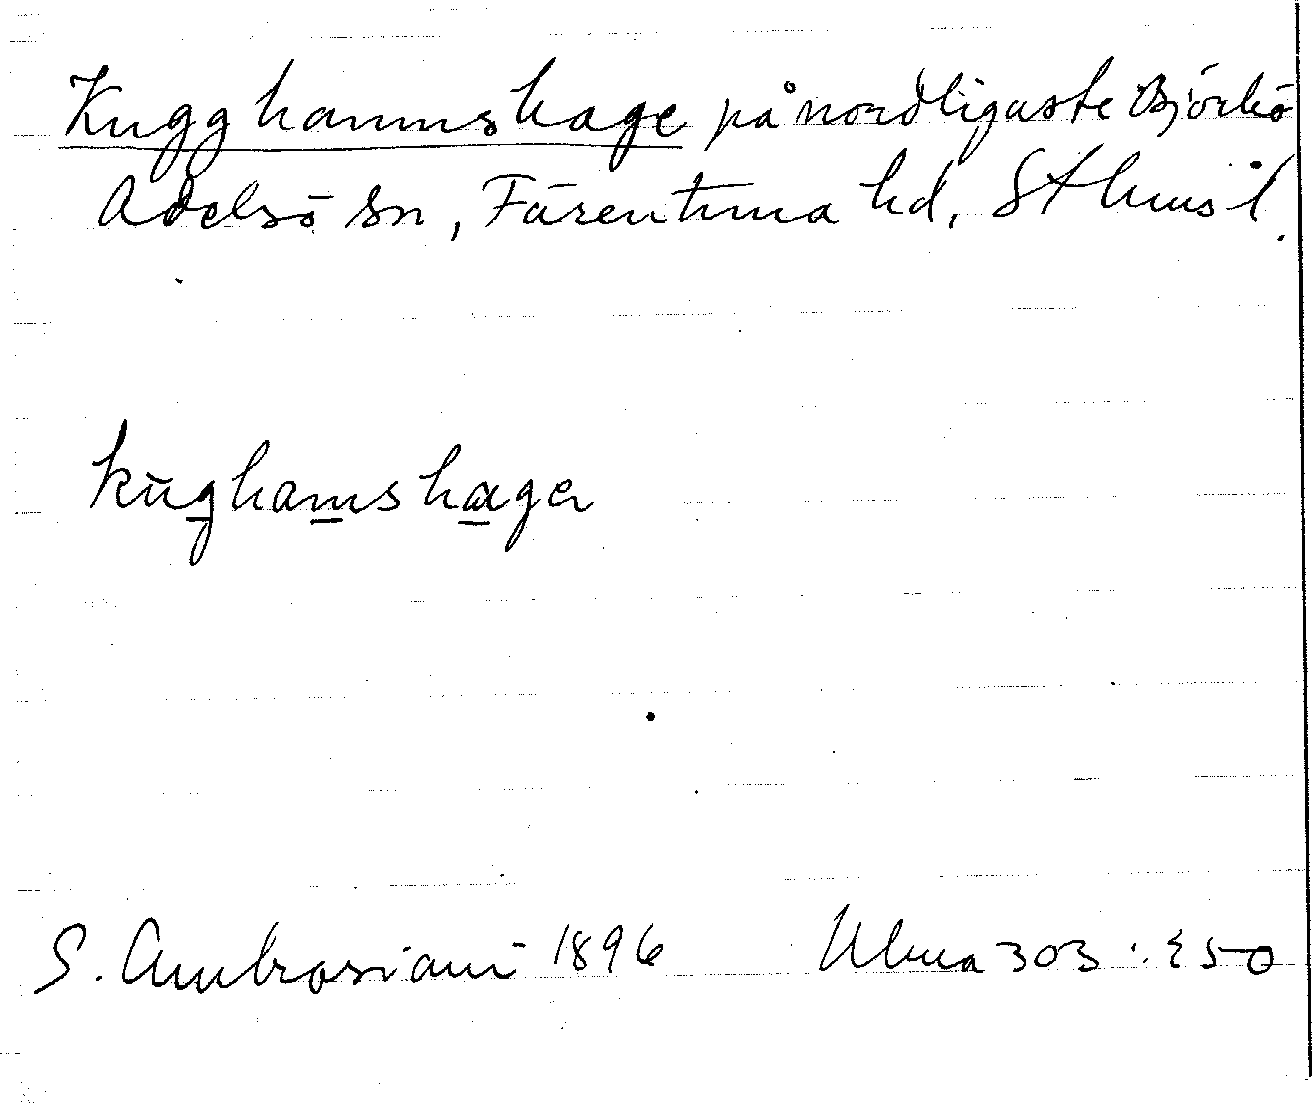 Kugghamnshage på nordligaste Björkö
Adelsö sn, Färentuna hd, Sthms l.
kùghamshagen
S. Ambrosiani 1896 Uluna 303:250